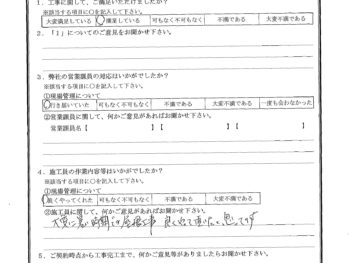 1．工事に関して、ご満足いただけましたか？
※該当する項目に○を記入して下さい。
大変満足している 満足している 可もなく不可もなく 不満である 大変不満である
2．「1」についてのご意見をお聞かせ下さい。
3．弊社の営業課員の対応はいかがでしたか？
※該当する項目に○を記入して下さい。
①現場管理について
行き届いていた 可もなく不可もなく 不満である 大変不満である 一度も会わなかった
②営業課員に関して、何かご意見があればお聞かせ下さい。
営業課員名【 】【 】
4．施工員の作業内容等はいかがでしたか？
※該当する項目に○を記入して下さい。
①現場管理について
良くやってくれた 可もなく不可もなく 不満である 大変不満である
②施工員に関して、何かご意見があればお聞かせ下さい。
大変に暑い時間での屋根工事
思ってます
5．ご契約時点から工事完工まで、何かご意見等がありましたらお聞かせ下さい。